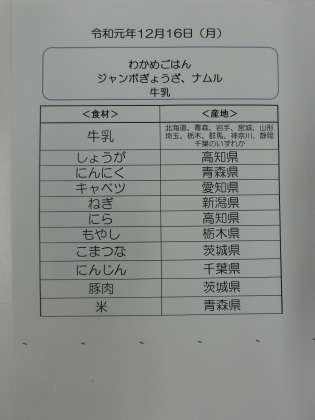 令和元年12月16日（月）
わかめごはん
ジャンボぎょうざ、ナムル
牛乳
＜食材＞ ＜産地＞
牛乳 北海道、青森、岩手、宮城、山形
埼玉、栃木、群馬、神奈川、静岡
千葉のいずれか
しょうが 高知県
にんにく 青森県
キャベツ 愛知県
ねぎ 新潟県
にら 高知県
もやし 栃木県
こまつな 茨城県
にんじん 千葉県
豚肉 茨城県
米 青森県